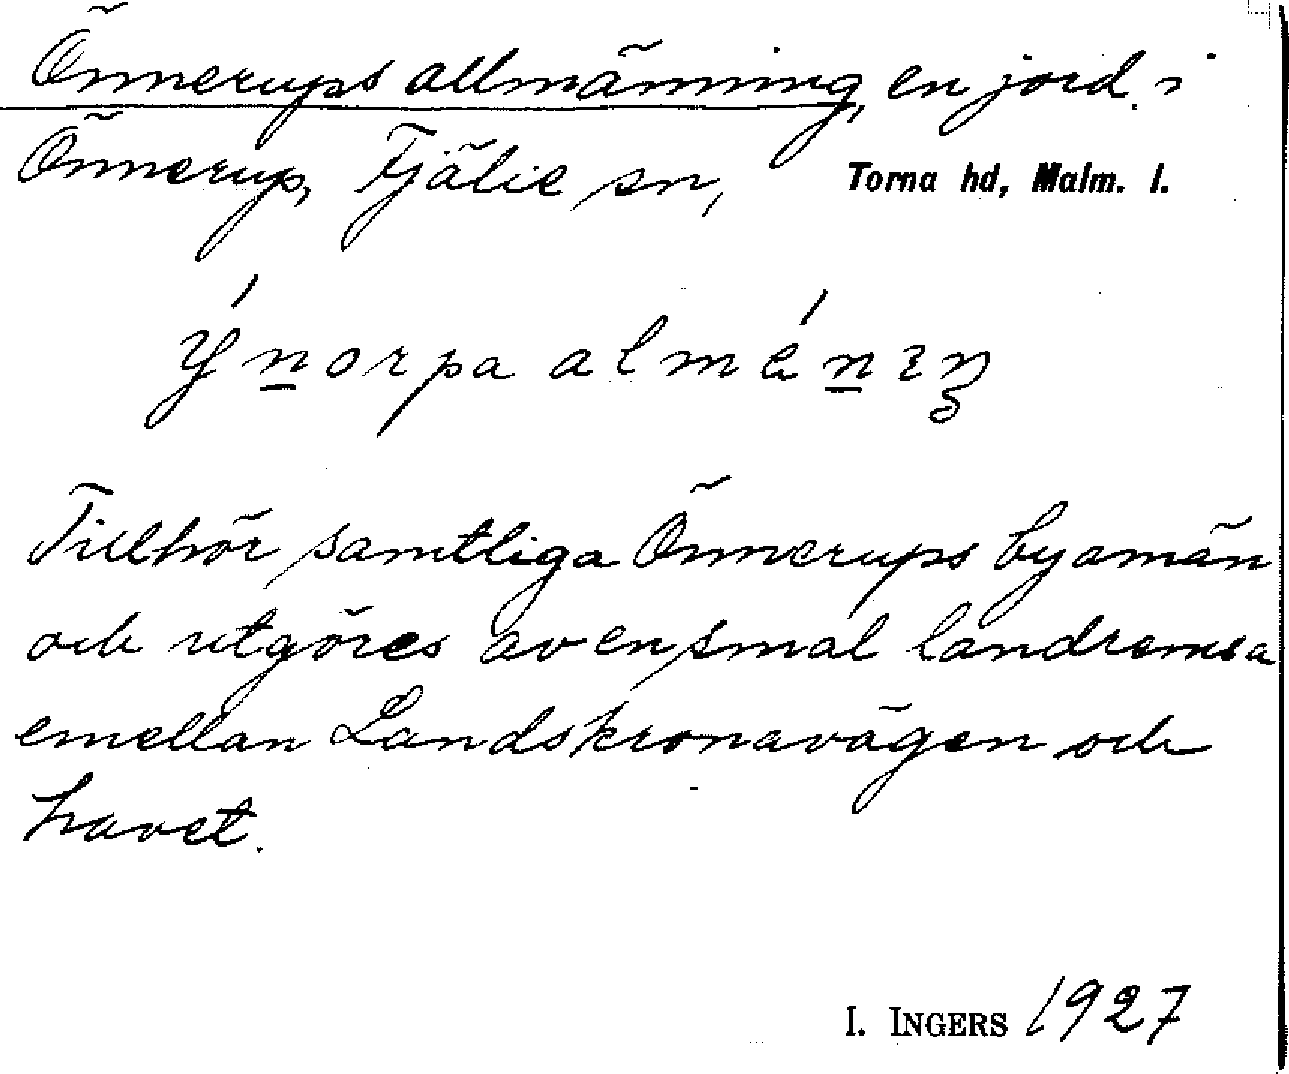 Önnerups allmänning, en jord i
Önnerup, Fjälie sn, Torna hd, Malm. l.
ýn̲orpa almǽn̲ıŋ
Tillhör samtliga Önnerups byamän
och utgöres av en smal landremsa
emellan Landskronavägen och
havet.
I. INGERS 1927